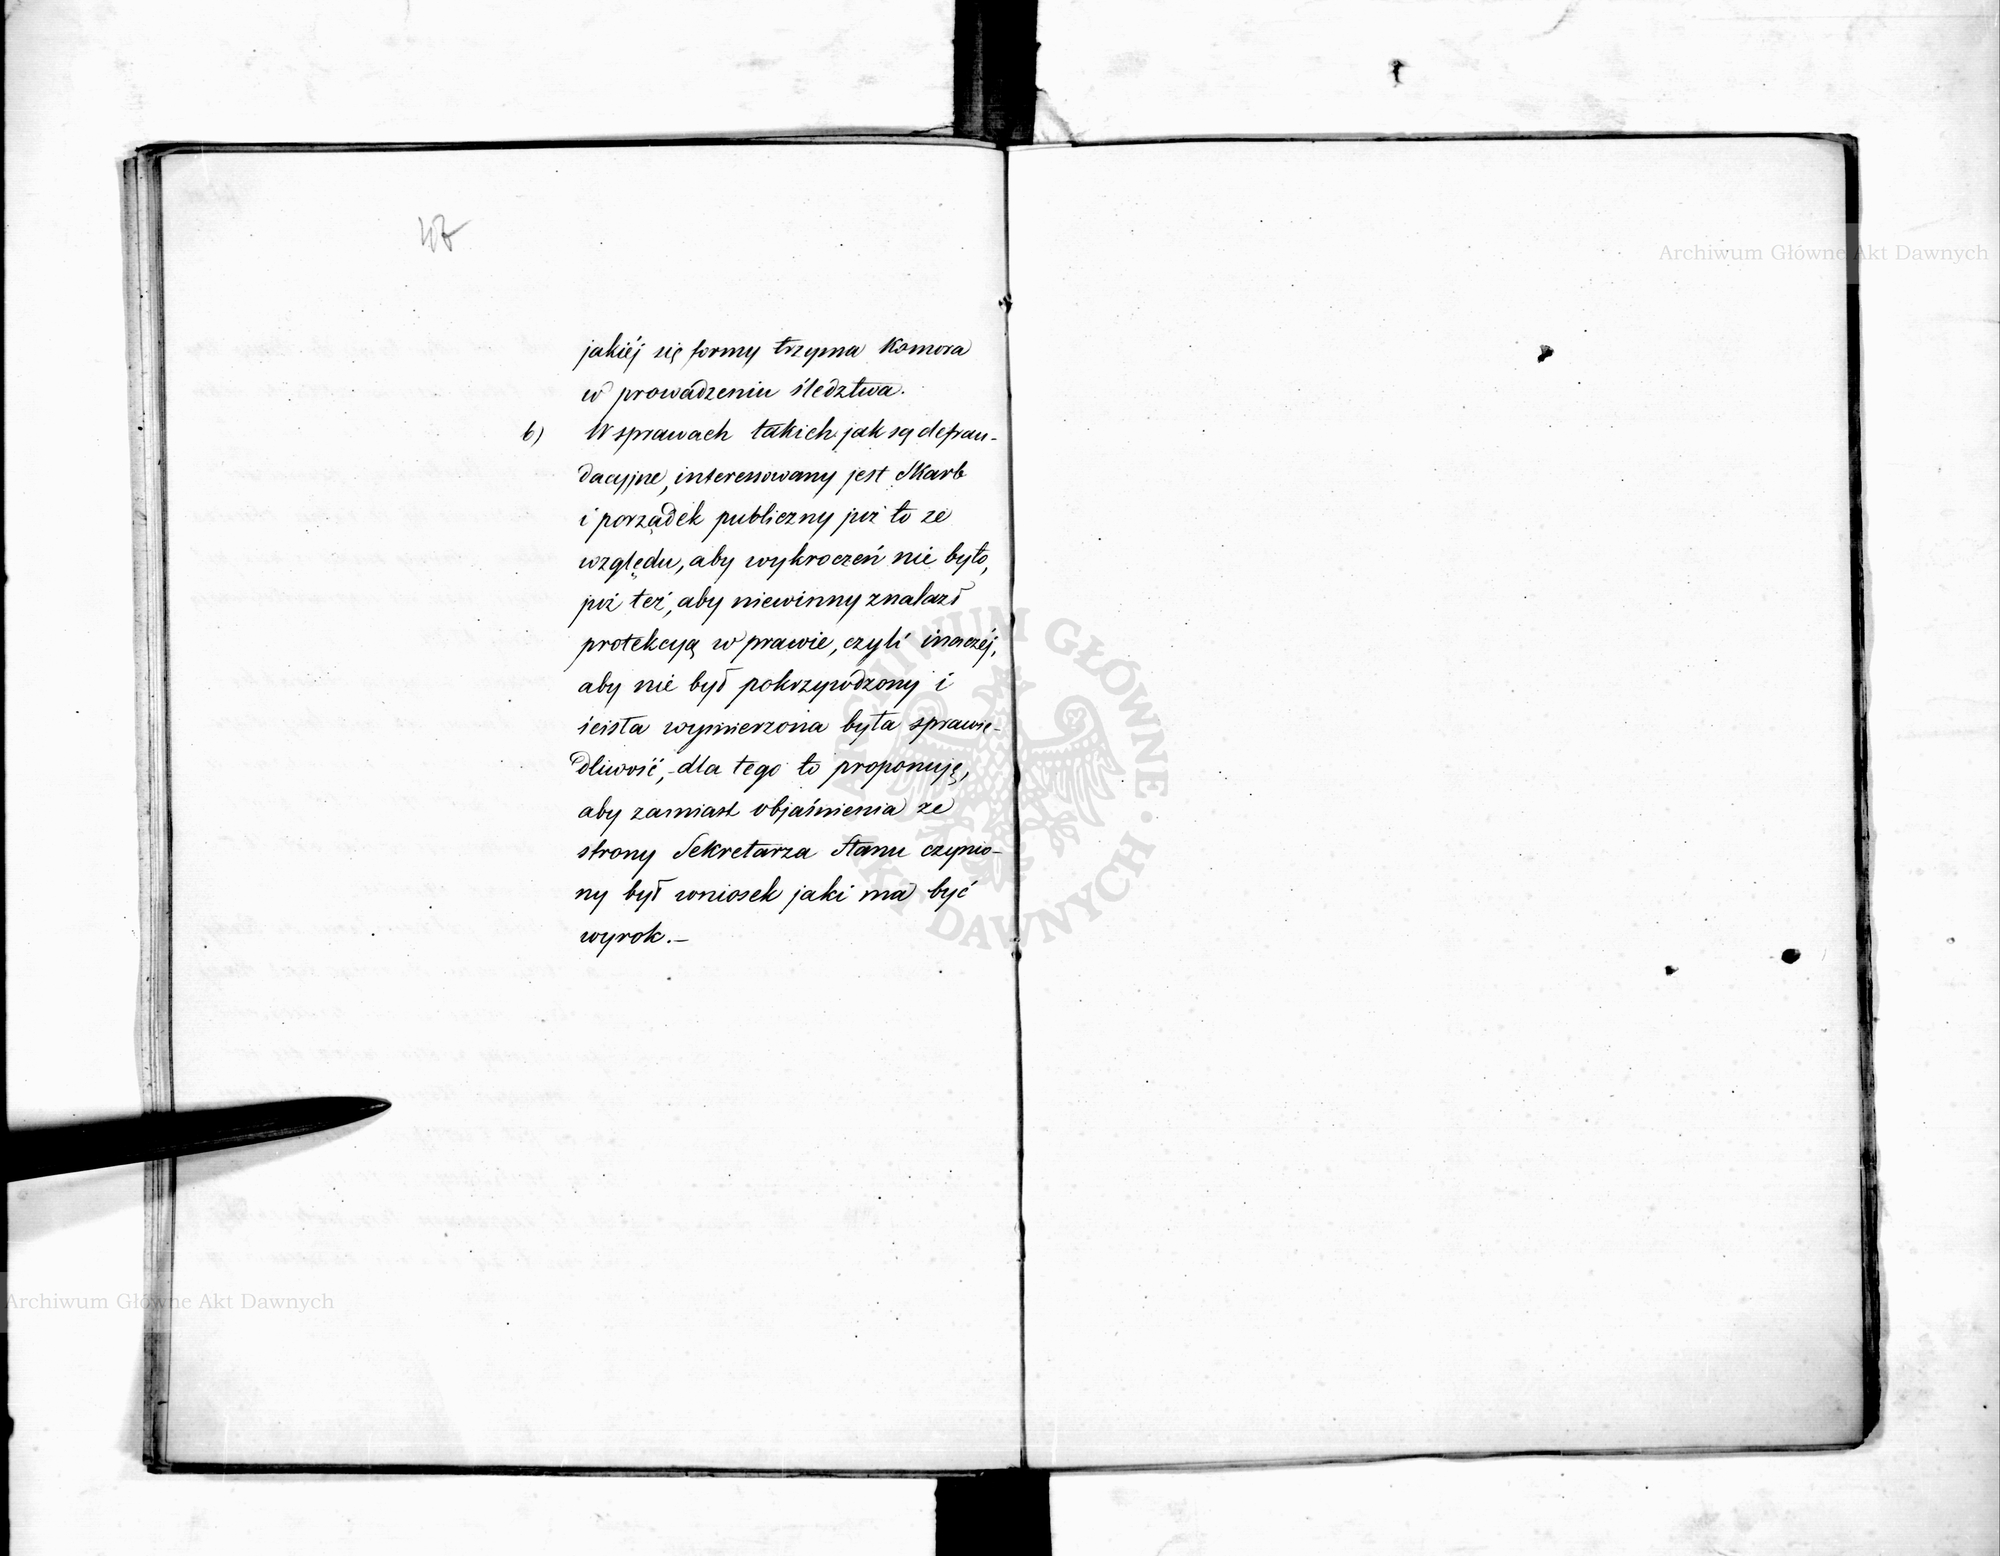 47
jakiéj się formy trzyma Komora
w prowadzeniu śledztwa.
b) W sprawach takich jak są defrau-
dacyjne, interessowany jest Skarb
i porządek publiczny już to ze
względu, aby wykroczeń nie było,
już też, aby niewinny znalazł
protekcyą w prawie, czyli inaczéj,
aby nie był pokrzywdzony i
ścisła wymierzona była sprawie-
dliwość, - dla tego to proponuję,
aby zamiast objaśnienia ze
strony Sekretarza Stanu czynio-
ny był wniosek jaki ma być
wyrok. –
Archiwum Główne Akt Dawnych
Archiwum Główne Akt Dawnych
ARCHIWUM GŁÓWNE AKT DAWNYCH